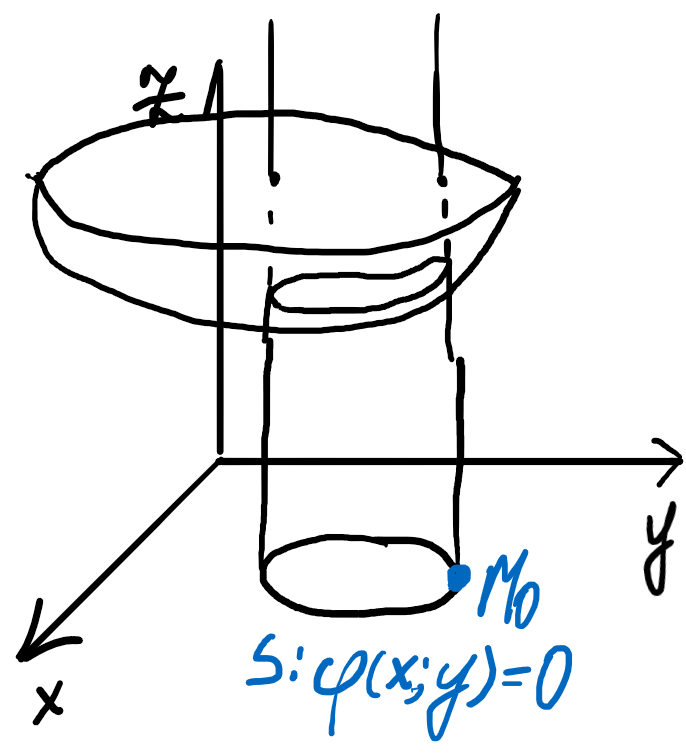 z
y
M₀
S: φ(x;y)=0
x